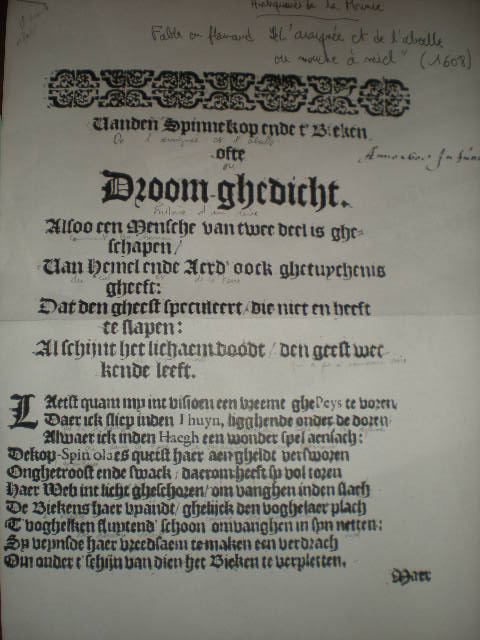 Antiquités de la Meuse
Fable en flamand "de l'araignée et de l'abeille
ou mouche à miel" (1608)
Vanden Spinnekop ende t'Bieken
De l'araignée et l'abeille
ofte
ou
Droom-ghedicht.
Alsoo een Mensche van twee deel is ghe-
schapen/
Van Hemel ende Aerd' oock ghetuychenis
gheeft:
Dat den gheest speculeert/ die niet en heeft
te slapen:
Al schijnt het lichaem doodt/ den geest wec-
kende leeft.
LAetst quam my int visioen een vreemt ghePeys te voren,
Daer ick sliep inden Thuyn, ligghende onder de doren
Alwaer ick inden Haegh een wonder spel aensach:
Dekop-Spinola es queist haer aengheldt versworen
Onghetroost ende swack/ daerom heeft sy vol toren
Haer Web int licht gheschoren/ om vanghen inden slach
De Biekens haer vyandt/ ghelijck den voghelaer plach
T'voghelken fluytend' schoon om vanghen in syn netten:
Sy veynsde haer vreedsaem te maken een verdrach
Om onder t'schijn van dien het Bieken te verpletten.
Maer